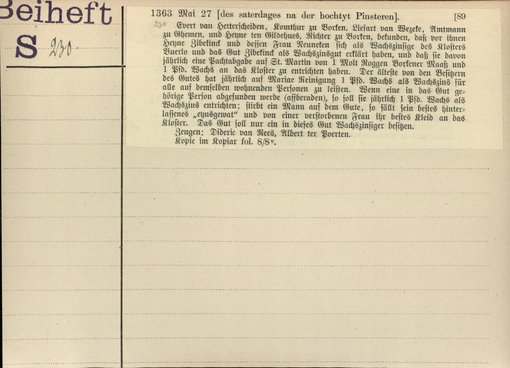 Beiheft
S 230
1363 Mai 27 [des saterdages na der hochtyt Pinsteren]. [89
230
Evert van Hetterscheiden, Komthur zu Borken, Liefart van Wezeke, Amtmann
zu Ghemen, und Heyne ten Gildehues, Richter zu Borken, bekunden, daß vor ihnen
Heyne Zibekinck und dessen Frau Neuneken sich als Wachszinsige des Klosters
Buerlo und das Gut Zibekinck als Wachszinsgut erklärt haben, und daß sie davon
jährlich eine Pachtabgabe auf St. Martin von 1 Molt Roggen Borkener Maaß und
1 Pfd. Wachs an das Kloster zu entrichten haben. Der älteste von den Besitzern
des Guts hat jährlich auf Mariae Reinigung 1 Pfd. Wachs als Wachszins für
alle auf demselben wohnenden Personen zu leisten. Wenn eine in das Gut ge-
hörige Person abgefunden werde (affberaden), so soll sie jährlich 1 Pfd. Wachs als
Wachszins entrichten; stirbt ein Mann auf dem Gute, so fällt sein bestes hinter-
lassenes und von einer verstorbenen Frau ihr bestes Kleid an das
Kloster. Das Gut soll nur ein in dieses Gut Wachszinsiger besitzen.
Zeugen: Dideric van Rees, Albert ter Poerten.
Kopie im Kopiar fol. 8/8ᵛ.